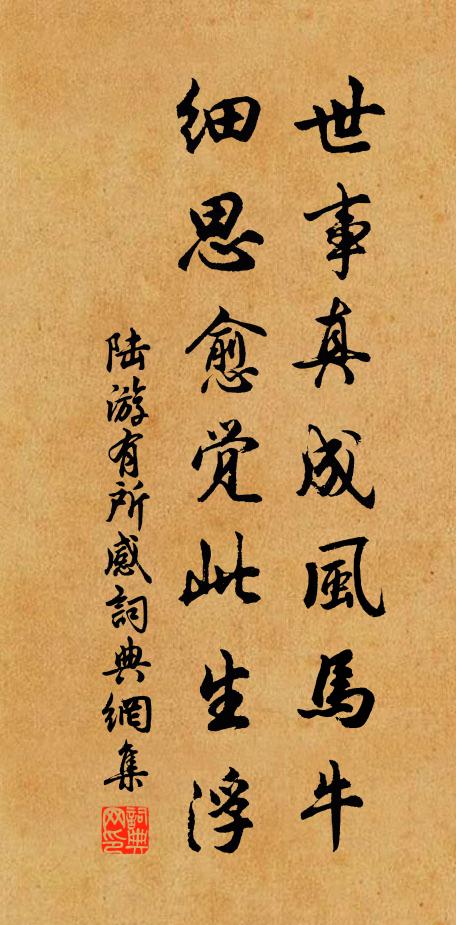 世事真成風馬牛
细思愈觉此生浮
陆游有所感詞典網集
詞典
网印